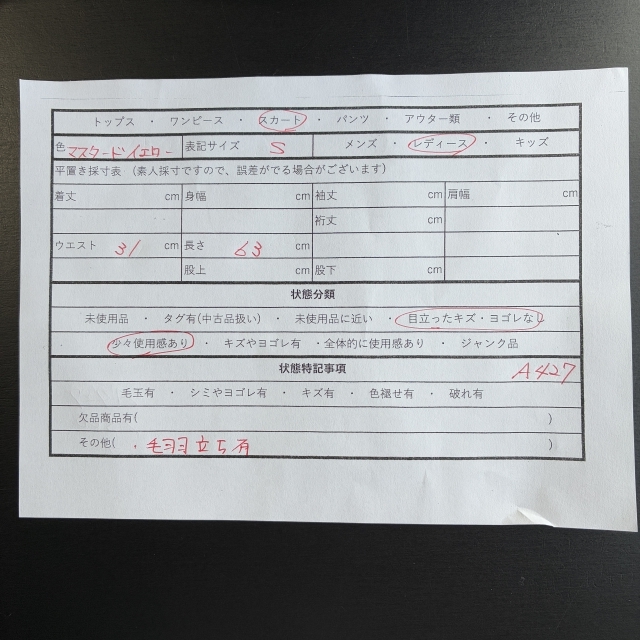 トップス ・ ワンピース ・ スカート ・ パンツ ・ アウター類 ・ その他
色 マスタードイエロー 表記サイズ S メンズ ・ レディース ・ キッズ
平置き採寸表 （素人採寸ですので、誤差がでる場合がございます）
着丈 cm 身幅 cm 袖丈 cm 肩幅 cm
裄丈 cm
ウエスト 31 cm 長さ 63 cm
股上 cm 股下 cm
状態分類
未使用品 ・ タグ有(中古品扱い) ・ 未使用品に近い ・ 目立ったキズ・ヨゴレなし
少々使用感あり ・ キズやヨゴレ有 ・全体的に使用感あり ・ ジャンク品
状態特記事項 A427
毛玉有 ・ シミやヨゴレ有 ・ キズ有 ・ 色褪せ有 ・ 破れ有
欠品商品有( )
その他( ・毛羽立ち有 )